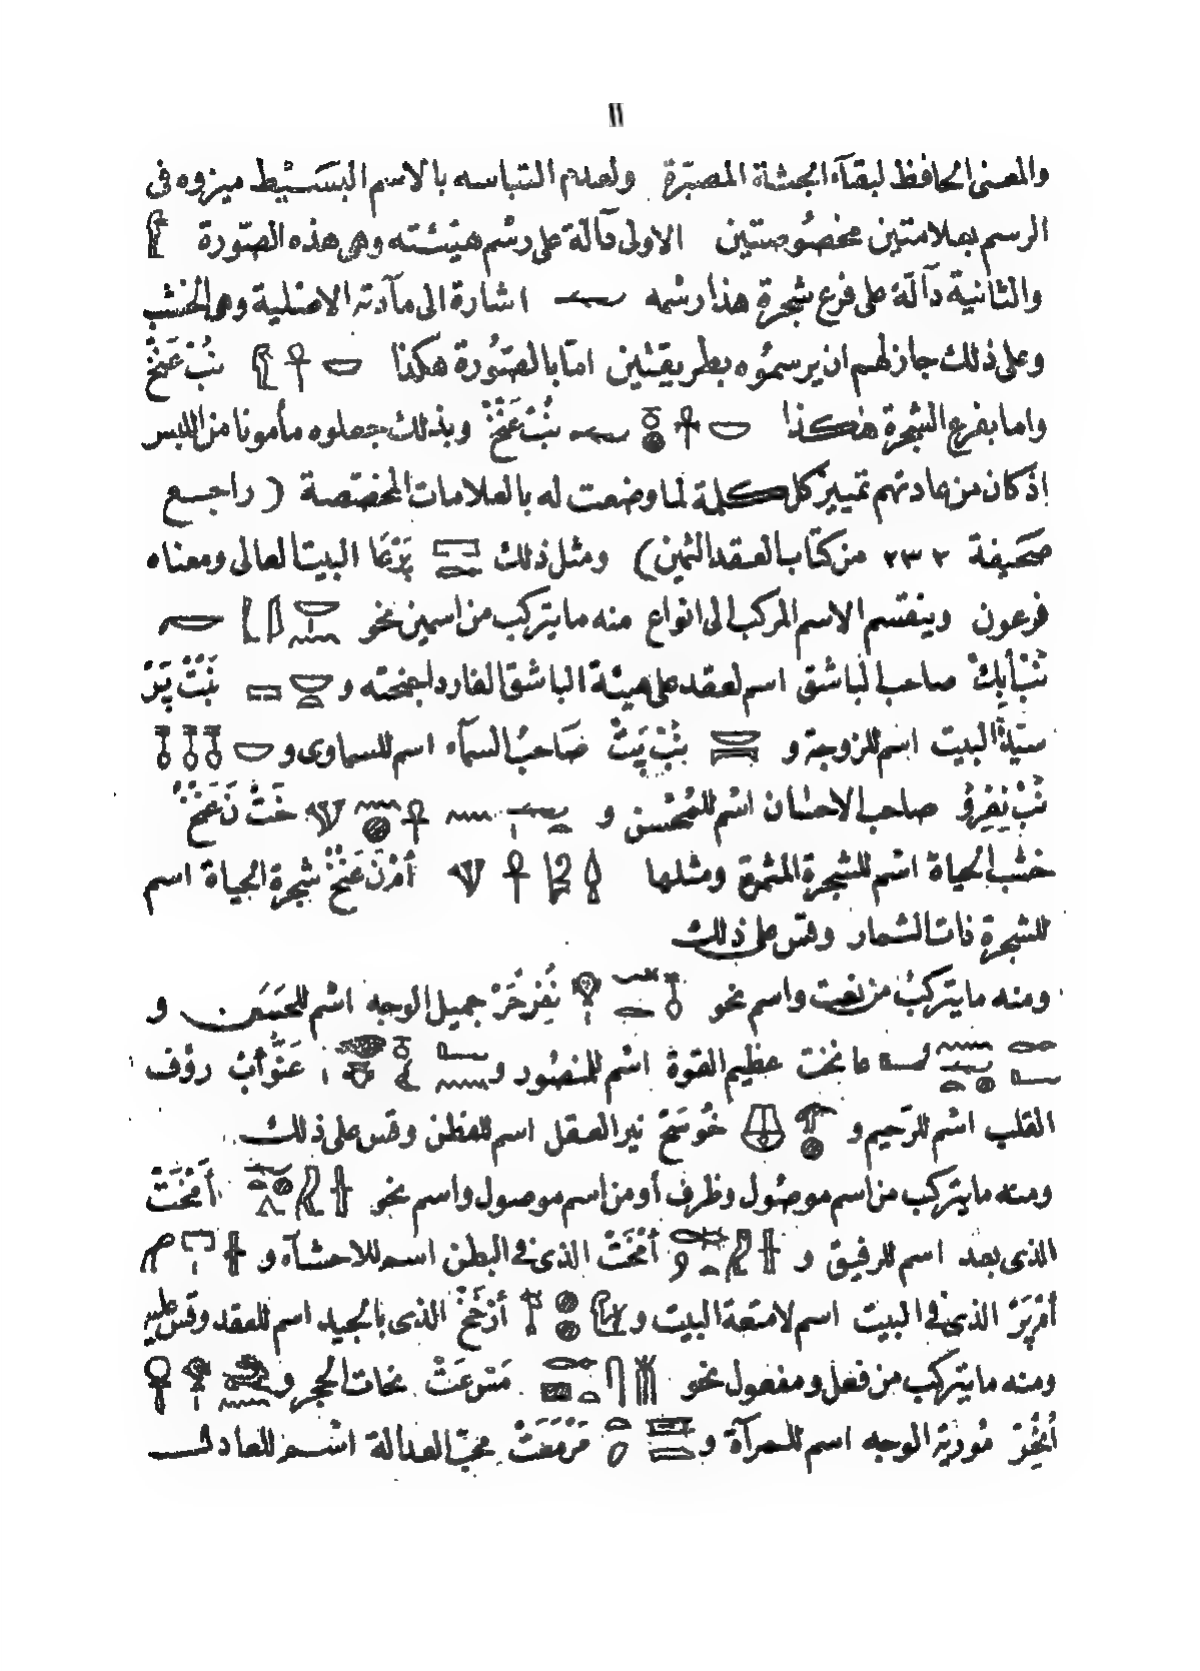 ١١
والمعنى الحافظ لبقآء الجثة المصبّرة ولعدم التباسه بالاسم البسيط ميزوه فى
الرسم بعلامتين مخصوصتين الاولى دآلة على رسْم هيئته وهى هذه الصّورة 𓀾
والثانية دآلة على فرع شجرة هذا رسْمه 𓆱 اشارة الى مآدته الاصلية وهى الخشب
وعلى ذلك جاز لهم ان يرسموه بطريقتين امّا بالصّورة هكذا 𓎟𓋹𓀾 نُبْ عَنْخْ
واما بفرع الشجرة هكذا 𓎟𓋹𓏌𓐍𓆱 نُبْ عَنْخْ وبذلك جعلوه مأمونا من اللبس
اِذ كان من عادتهم تمييز كل كلمة لما وضعت له بالعلامات المختصة (راجع
صحيفة ٢٣٢ من كتاب العقد الثمين) ومثل ذلك 𓉐𓉻 پَرْعَا البيت العالى ومعناه
فرعون وينقسم الاسم المركب الى انواع منه ما يتركب من اسمين نحو
صاحب الباشق اسم لعقد على هيئة الباشق الفارد اجنحته و نِبْتْ پَرْ
ستيدة البيت اسم للزوجة و نِبْ پِتْ صَاحبُ السمآء اسم للسماوى و 𓎟𓄤𓄤𓄤
نبْ نِفِرُو صاحب الاحسان اسْم للمُحْسن و خَتْ نَ عَنْخْ
خشب الحياة اسْم للشجرة المثمرة ومثلها أمْرْنَ عَنْخْ شجرة الحياة اسم
للشجرة ذات الثمار وقس على ذلك
ومنه ما يتركبُ من نعت واسم نحو نِفِرْحَرْ جميل الوجه اسْم للحَسَن و
عَا نخت عظيم القوة اسْم للمنصُور و رؤف
القلب اسْم للرّحيم و خُوسَخْ نير العقل اسم للفطن وقس على ذلك
ومنه ما يتركب من اسم موصُول وظرف أو من اسم موصول واسم نحو أمْخَتْ
الذى بعد اسم للرفيق و أمْخَتْ الذى فى البطن اسم للاحشآء و
أمْرْپَرْ الذى فى البيت اسم لامتعة البيت و الذى بالجيد اسم للعقد وقس عليه
ومنه ما يتركب من فعل ومفعول نحو نحات الحجر و
مُورية الوجه اسم للمرآة و مَرْمَعَتْ محبّ العدالة اسْم للعادل